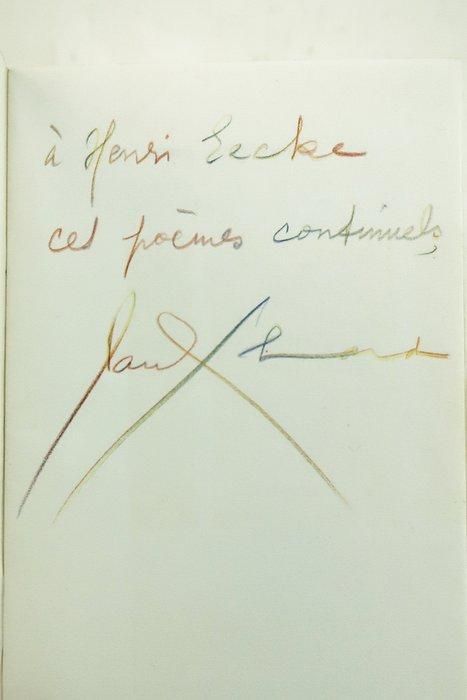 à Henri Eecke
ces poèmes continuels,
Paul Eluard